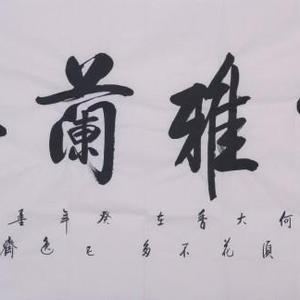 雅蘭
何須大花香不在多癸巳年逸善齋